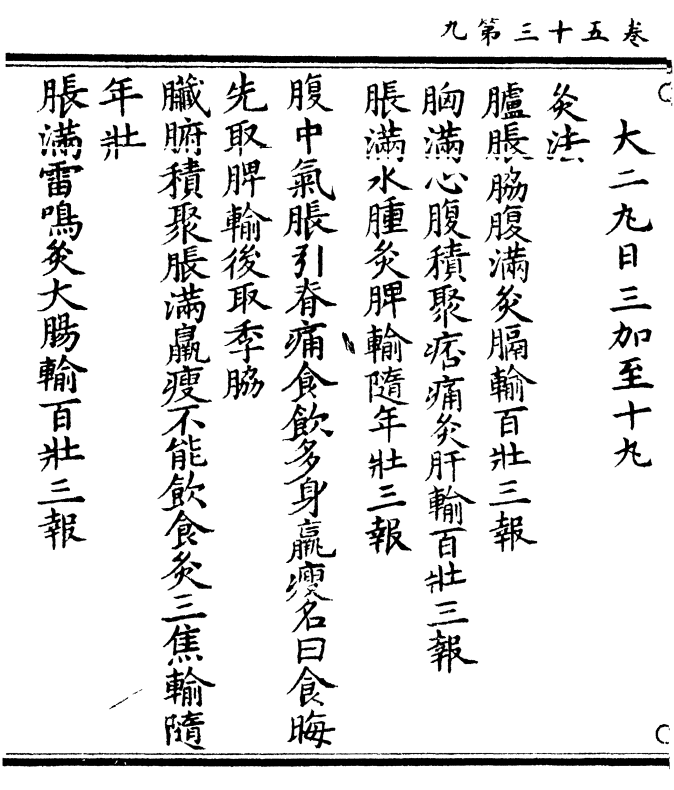 卷五十三第九
大二九日三加至十九
灸法
臚脹脇腹滿灸膈輸百壯三報
胸滿心腹積聚痞痛灸肝輸百壯三報
脹滿水腫灸脾輸隨年壯三報
腹中氣脹引脊痛食飲多身羸瘦名曰食晦
先取脾輸後取季脇
臟腑積聚脹滿羸瘦不能飲食灸三焦輸隨
年壯
脹滿雷鳴灸大腸輸百壯三報